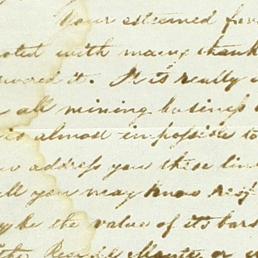 Your esteemed fav
noted with many thank
wered it. It is really a
all mining business
is almost impossible to
address you these lin
ll you may know
be the value of its bars
the